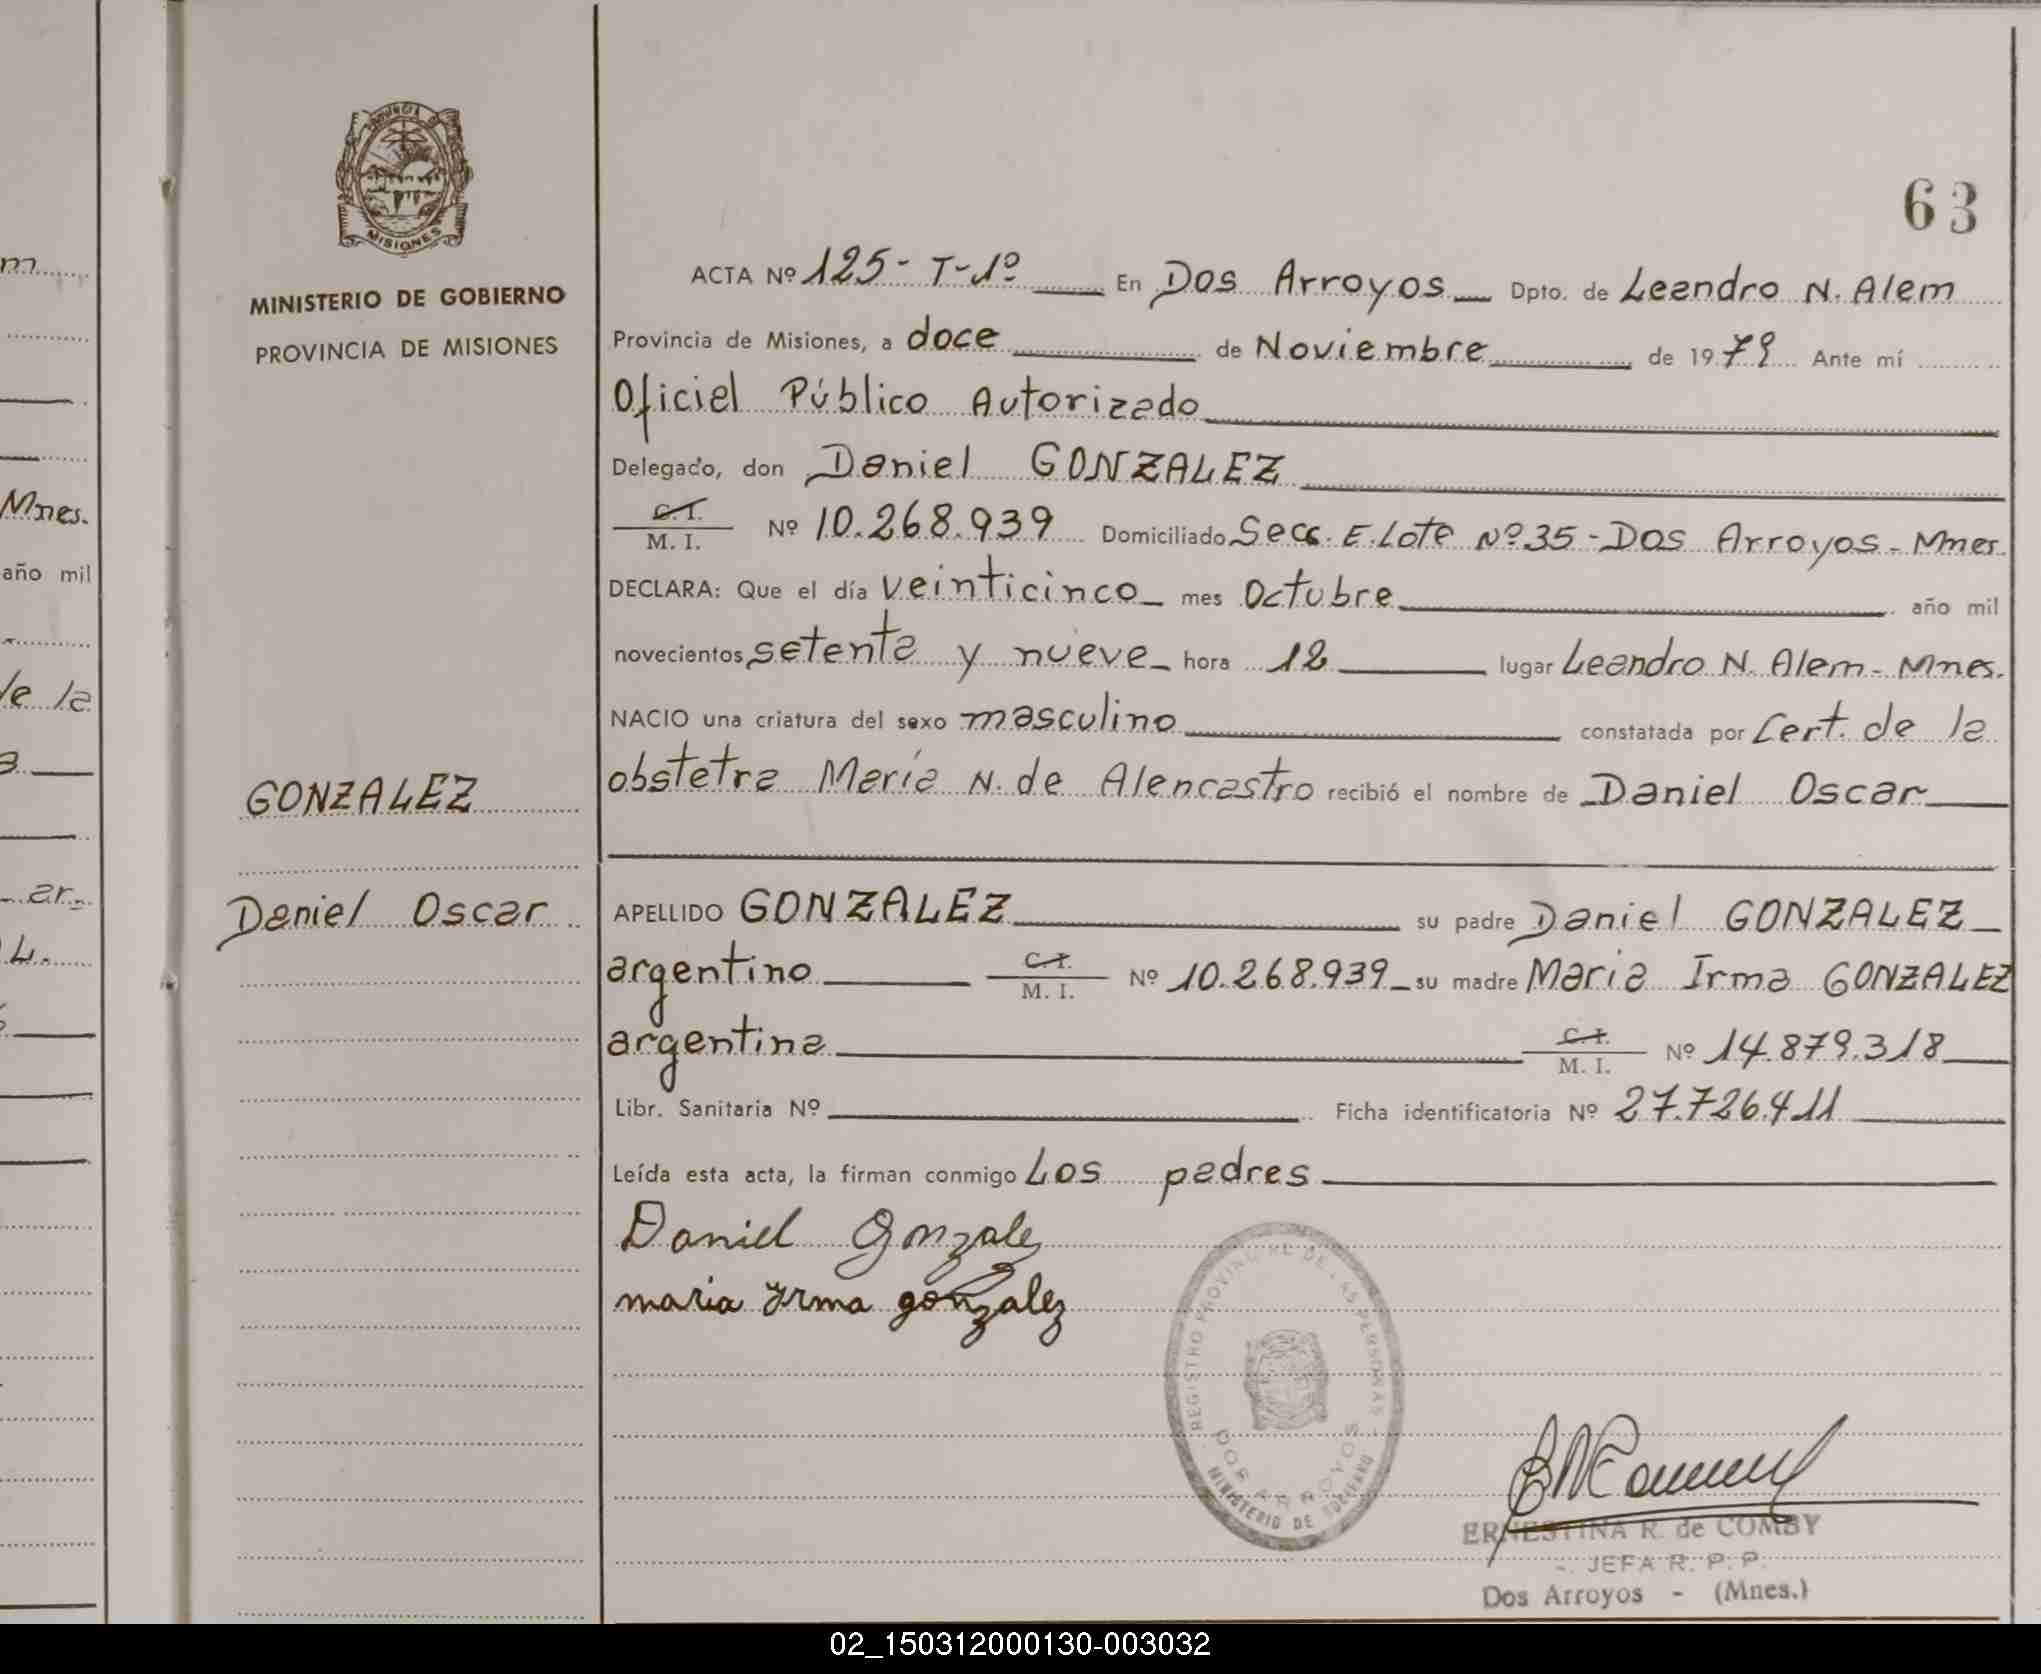 PROVINCIA DE
MISIONES
MINISTERIO DE GOBIERNO
PROVINCIA DE MISIONES
GONZALEZ
Daniel Oscar
63
ACTA Nº 125 - T - 1º En Dos Arroyos Dpto. de Leandro N. Alem
Provincia de Misiones, a doce de Noviembre de 1979 Ante mí
Oficial Público Autorizado
Delegado, don Daniel GONZALEZ
C.I. M. I. Nº 10.268.939 Domiciliado Secc. E. Lote Nº 35 - Dos Arroyos - Mnes.
DECLARA: Que el día veinticinco mes Octubre año mil
novecientos setenta y nueve hora 12 lugar Leandro N. Alem - Mnes.
NACIO una criatura del sexo masculino constatada por Cert. de la
obstetra María N. de Alencastro recibió el nombre de Daniel Oscar
APELLIDO GONZALEZ su padre Daniel GONZALEZ
argentino C.I. M. I. Nº 10.268.939 su madre María Irma GONZALEZ
argentina C.I. M. I. Nº 14.879.318
Libr. Sanitaria Nº Ficha identificatoria Nº 27.726.411
Leída esta acta, la firman conmigo Los padres
Daniel Gonzalez
maria Irma gonzalez
REGISTRO PROVINCIAL DE LAS PERSONAS
DOS ARROYOS
MINISTERIO DE GOBIERNO
ERNESTINA R. de COMBY
JEFA R. P. P.
Dos Arroyos - (Mnes.)
Mnes.
año mil
de la
ar
02_150312000130-003032